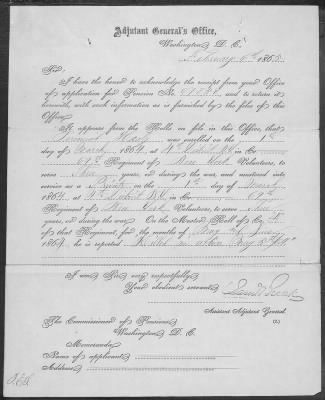 Adjutant General's Office,
Washington, D. C.
February 6th, 1865.
Sir:
I have the honor to acknowledge the receipt from your Office
of application for Pension No. and to return it
herewith, with such information as is furnished by the files of this
Office.
It appears from the Rolls on file in this Office, that
was enrolled on the 1st
day of March 1864, at in Co.
69th Regiment of New York Volunteers, to
serve Three years, or during the war, and mustered into
service as a Private on the 1st day of March
1864, at in Co. 69th
Regiment of New York Volunteers, to serve Three
years, or during the war. On the Muster Roll of Co.
of that Regiment, for the months of May and June
1864, he is reported Killed in action May
I am, Sir, very respectfully,
Your obedient servant,
Assistant Adjutant General.
The Commissioner of Pensions,
Washington, D. C.
Memoranda.
Name of applicant
Address